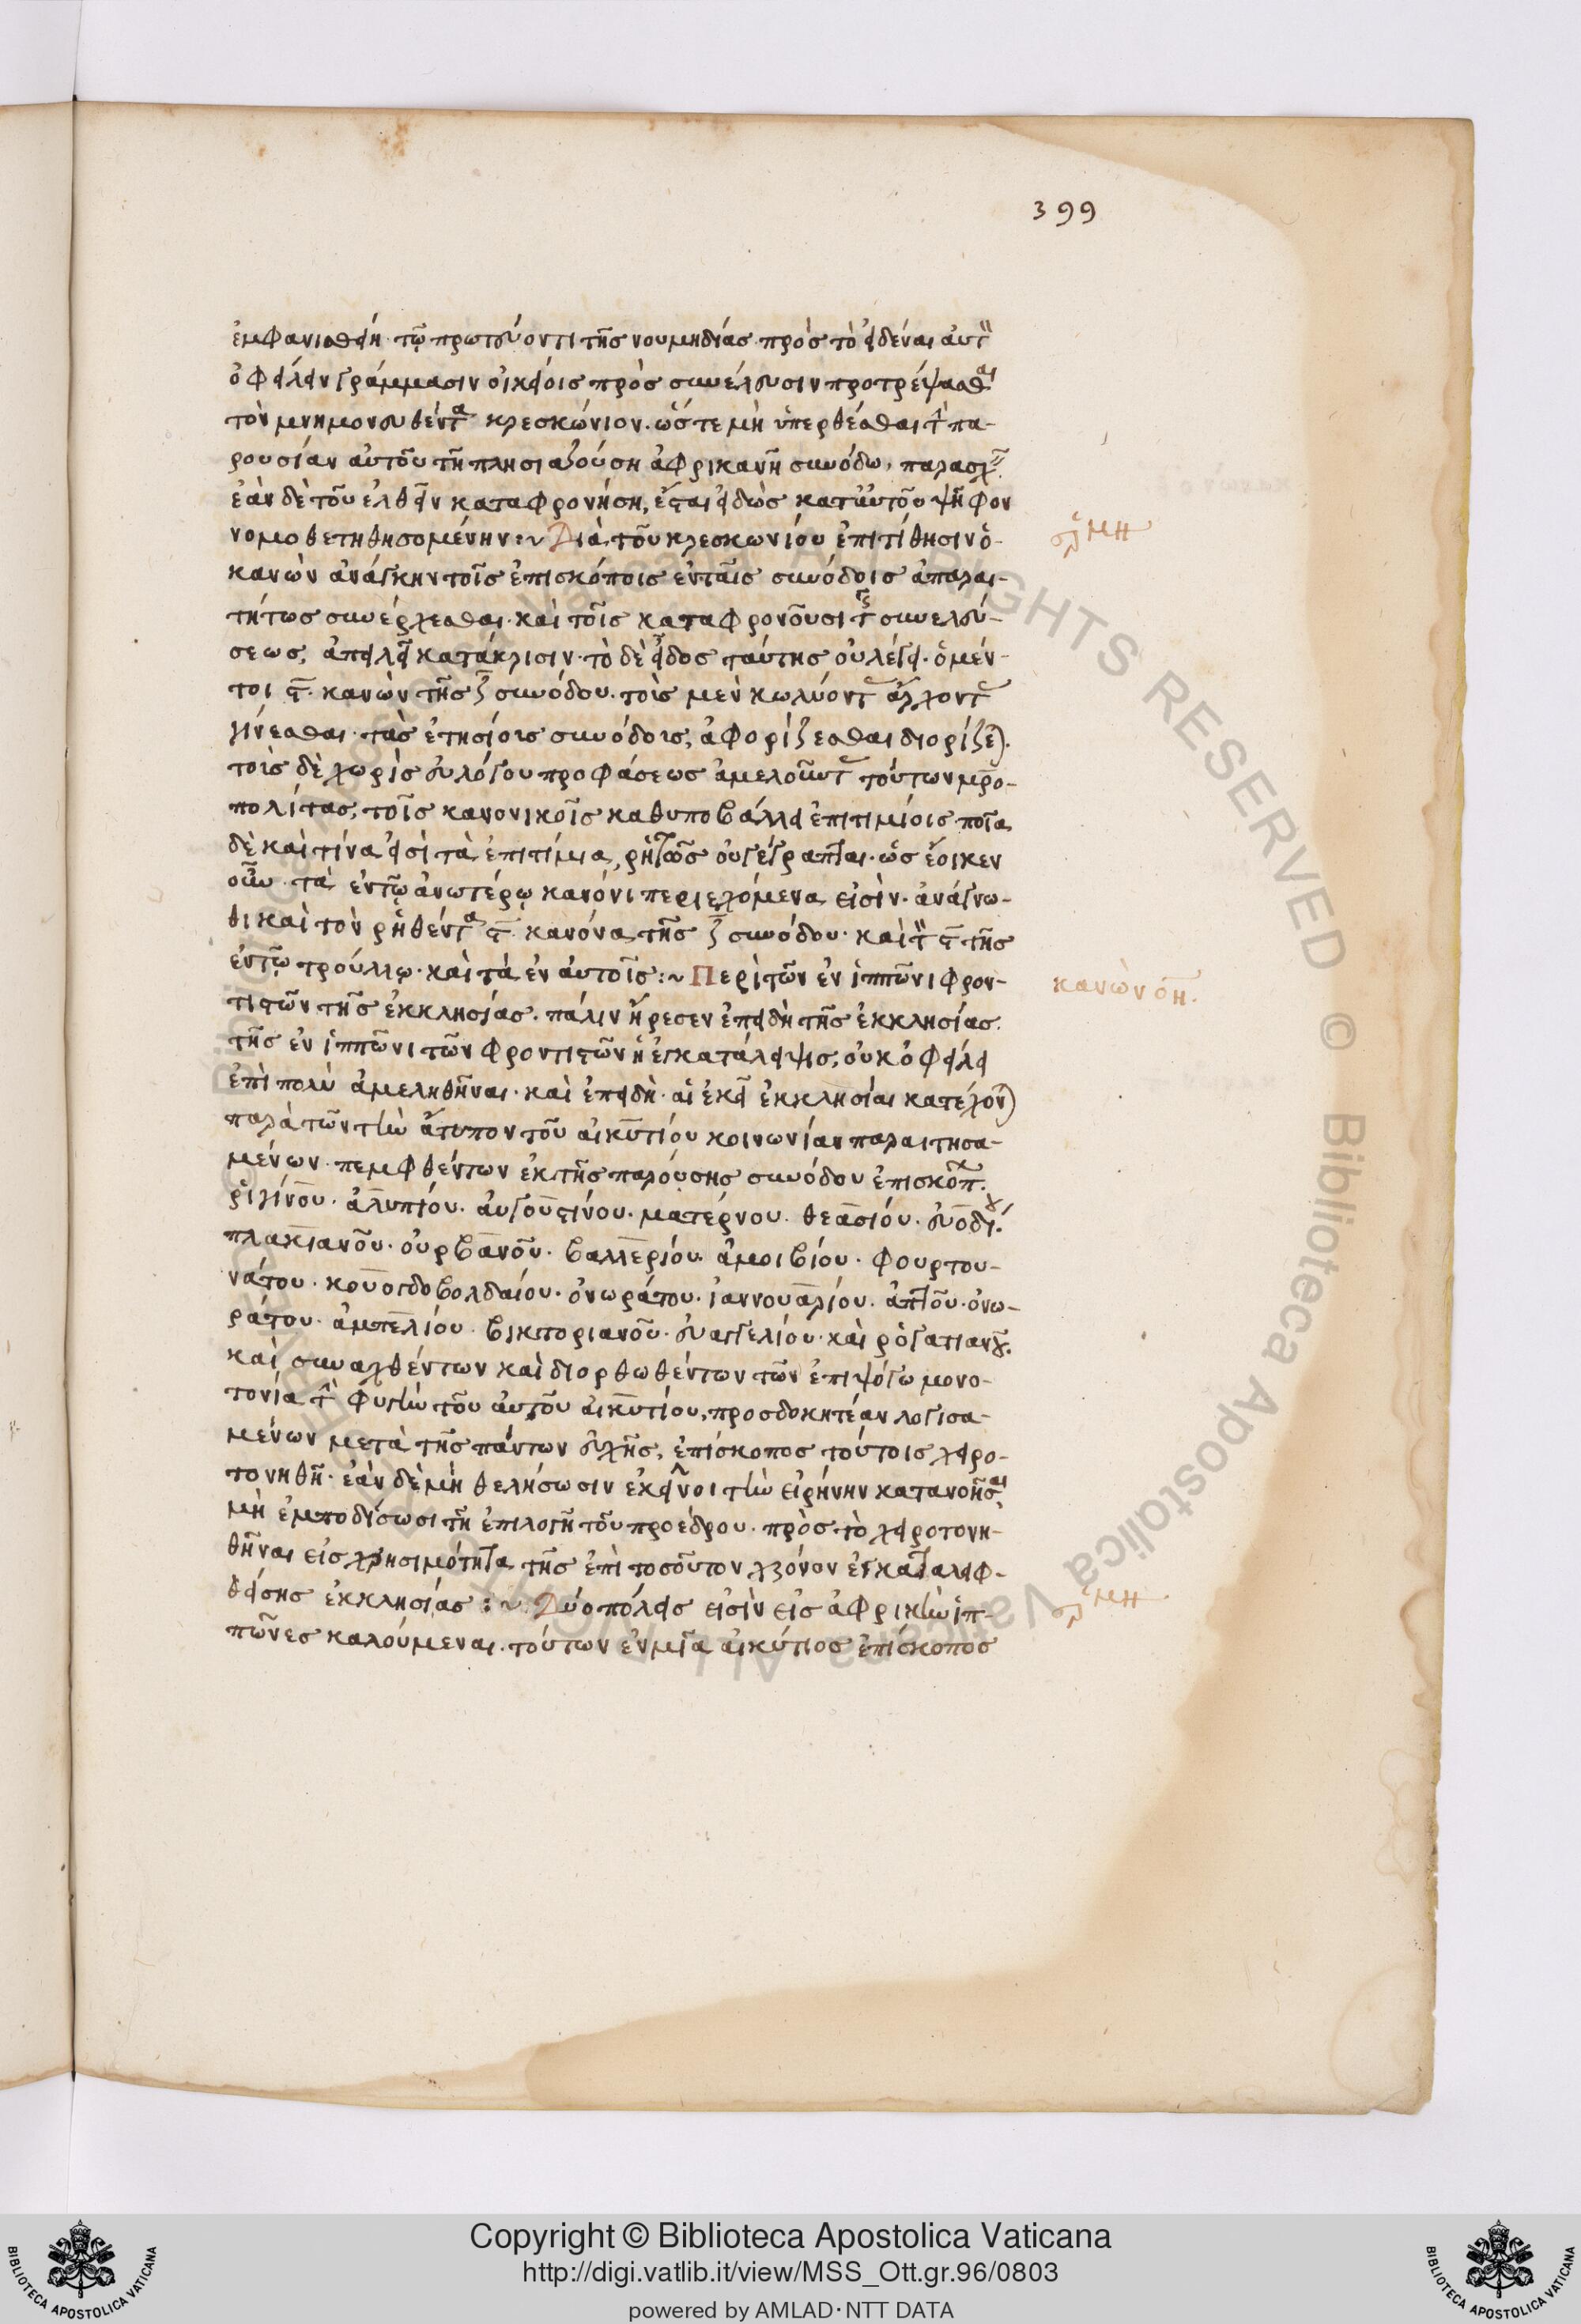 399
ἐμφανισθείη τῷ πρωτεύοντι τῆς νουμηδίας πρὸς τὸ εἰδέναι αὐτὸν
ὀφείλειν γράμμασιν οἰκείοις πρὸς συνέλευσιν προτρέψασθαι
τὸν μνημονευθέντα κρεσκώνιον. ὥστε μὴ ὑπερθέσθαι τὴν πα-
ρουσίαν αὐτοῦ τῇ πλησιαζούση ἀφρικανῇ συνόδω, παρασχεῖν.
ἐὰν δὲ τοῦ ἐλθεῖν καταφρονήση, ἔσται εἰδὼς κατ' αὐτοῦ ψῆφον
νομοθετηθησομένην :~ Διὰ τοῦ κρεσκωνίου ἐπιτίθησιν ὁ
ἑρμη
κανὼν ἀνάγκην τοῖς ἐπισκόποις ἐν ταῖς συνόδοις ἀπαραι-
τήτως συνέρχεσθαι. καὶ τοῖς καταφρονοῦσι τῆς συνελεύ-
σεως, ἀπειλεῖ κατάκρισιν. τὸ δὲ εἶδος ταύτης οὐ λέγει. ὁ μέν-
τοι ϛ̅ κανὼν τῆς ζ̅ συνόδου. τοὺς μὲν κωλύοντας ἄρχοντας
γίνεσθαι τὰς ἐτησίοις συνόδοις, ἀφορίζεσθαι διορίζεται.
τοὺς δὲ χωρὶς εὐλόγου προφάσεως ἀμελοῦντας τούτων μητρο-
πολίτας, τοῖς κανονικοῖς καθυποβάλλει ἐπιτιμίοις. ποῖα
δὲ καὶ τίνα εἰσὶ τὰ ἐπιτίμια, ῥητῶς οὐ γέγραπται. ὡς ἔοικεν
οὖν τὰ ἐν τῷ ἀνωτέρῳ κανόνι περιεχόμενα εἰσίν. ἀνάγνω-
θι καὶ τὸν ῥηθέντα ϛ̅ κανόνα τῆς ζ̅ συνόδου. καὶ τὸν ϛ̅ τῆς
ἐν τῷ τρούλλῳ. καὶ τὰ ἐν αὐτοῖς :~ Περὶ τῶν ἐν ἱππῶνι φρον-
κανὼν οη.
τιστῶν τῆς ἐκκλησίας. πάλιν ἤρεσεν ἐπειδὴ τῆς ἐκκλησίας
τῆς ἐν ἱππῶνι τῶν φροντιστῶν ἡ ἐγκατάλειψις, οὐκ ὀφείλει
ἐπὶ πολὺ ἀμεληθῆναι. καὶ ἐπειδὴ αἱ ἐκεῖ ἐκκλησίαι κατέχονται
παρὰ τῶν τὴν ἄτυπον τοῦ αἰκυτίου κοινωνίαν παραιτησα-
μένων. πεμφθέντων ἐκ τῆς παρούσης συνόδου ἐπισκόπων.
ῥιγίνου. ἀλυπίου. αὐγουστίνου. ματέρνου. θεασίου. εὐοδίου.
πλακιανοῦ. οὐρβανοῦ. βαλλερίου. ἀμοιβίου. φουρτου-
νάτου. κουοιδοβολδαίου. ὀνωράτου. ἰαννουαρίου. ἀπτοῦ. ὀνω-
ράτου. ἀμπελίου. βικτοριανοῦ. εὐαγγελίου. καὶ ῥογατιανοῦ.
καὶ συναχθέντων καὶ διορθωθέντων τῶν ἐπιψόγω μονο-
τονία τὴν φυγὴν τοῦ αὐτοῦ αἰκυτίου, προσδοκητέαν λογισα-
μένων μετὰ τῆς πάντων εὐχῆς, ἐπίσκοπος τούτοις χειρο-
τονηθῇ. ἐὰν δὲ μὴ θελήσωσιν ἐκεῖνοι τὴν εἰρήνην κατανοῆσαι,
μὴ ἐμποδίσωσι τῇ ἐπιλογῇ τοῦ προέδρου. πρὸς τὸ χειροτονη-
θῆναι εἰς χρησιμότητα τῆς ἐπὶ τοσοῦτον χρόνον ἐγκαταλειφ-
θείσης ἐκκλησίας :~ Δύο πόλεις εἰσὶν εἰς ἀφρικὴν ἱπ-
ἑρμη
πῶνες καλούμεναι. τούτων ἐν μιᾷ αἰκύτιος ἐπίσκοπος
Copyright © Biblioteca Apostolica Vaticana
http://digi.vatlib.it/view/MSS_Ott.gr.96/0803
powered by AMLAD·NTT DATA